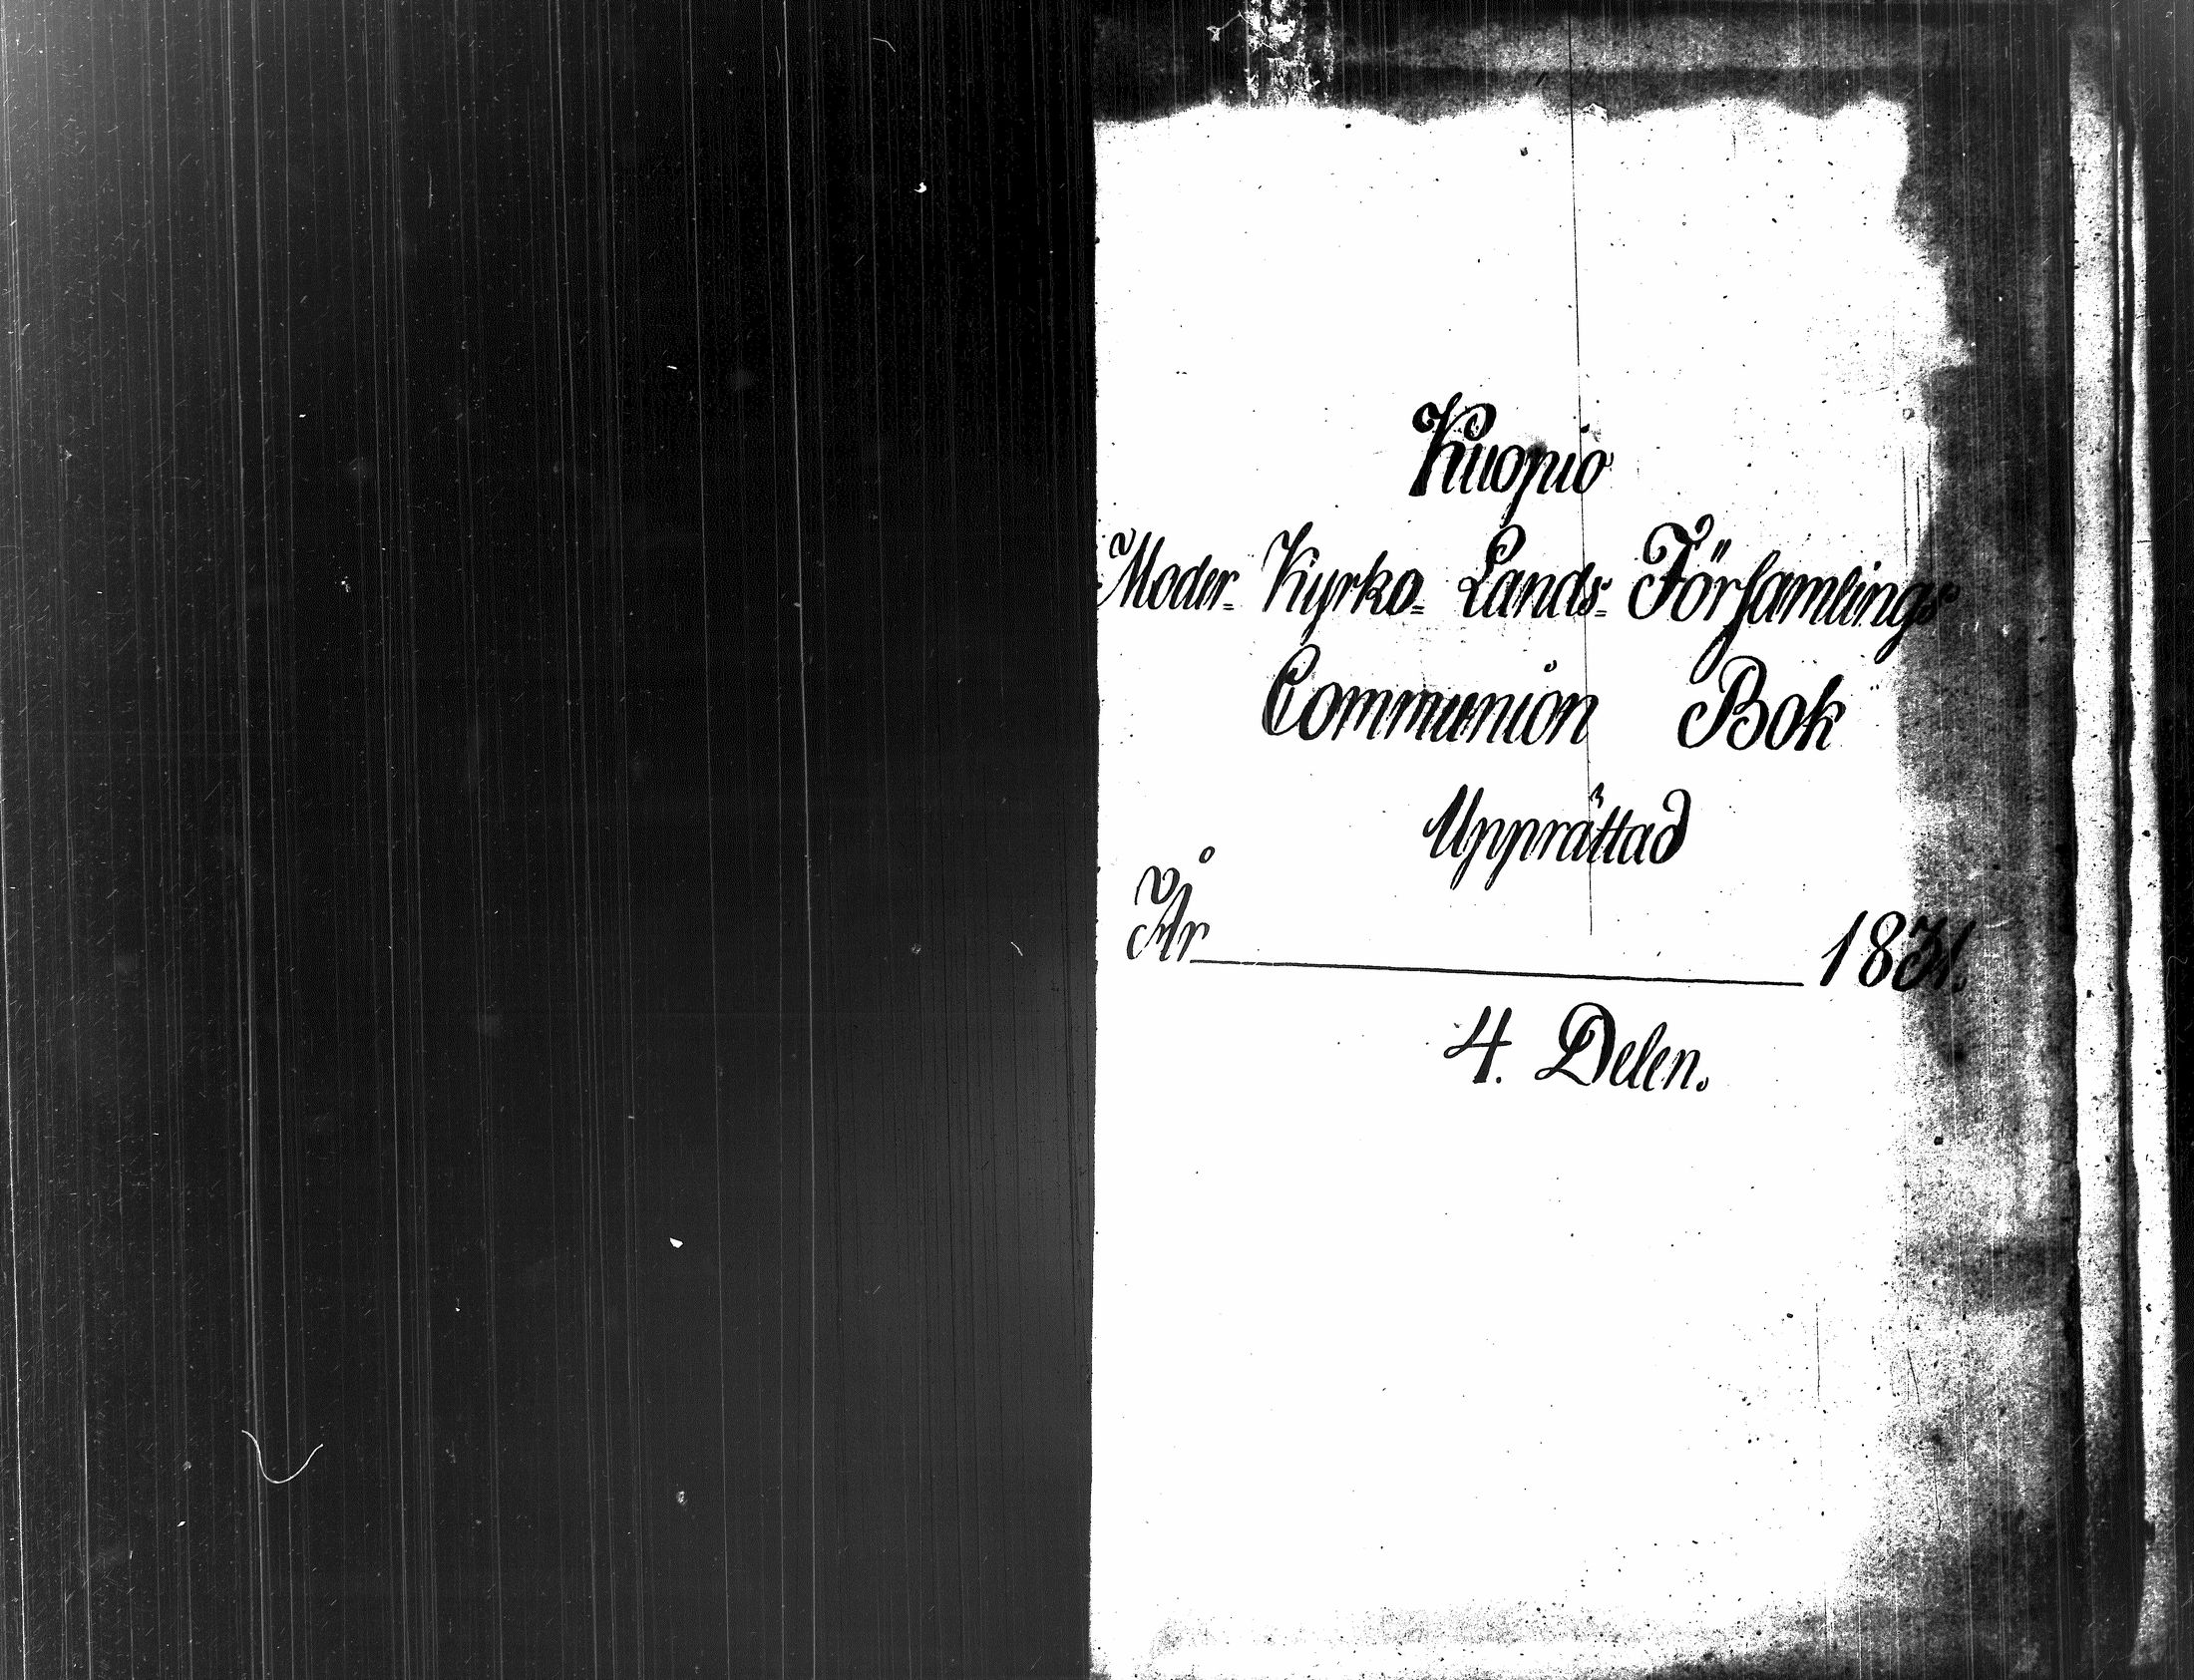 Kuopio
Moder= Kyrko= Lands= Församlings
Communion Bok
Upprättad
År 1831.
4. Delen.